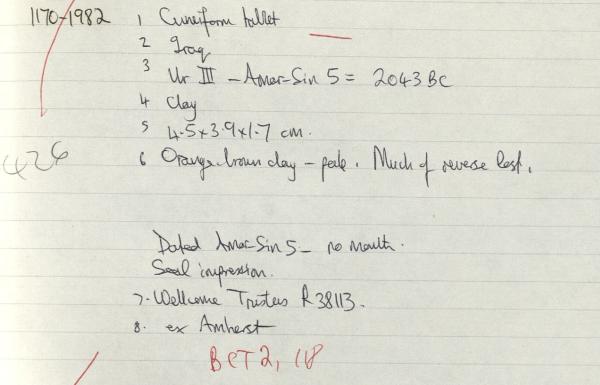 1170-1982 1 Cuneiform tablet
2 Iraq
3 Ur III - Amar-Sin 5 = 2043 BC
4 Clay
5 4.5 x 3.9 x 1.7 cm.
426
6 Orange-brown clay - pale. Much of reverse lost.
Dated Amar-Sin 5 - no month.
Seal impression.
7. Wellcome Trustees R38113.
8. ex Amherst
BCT 2, 118